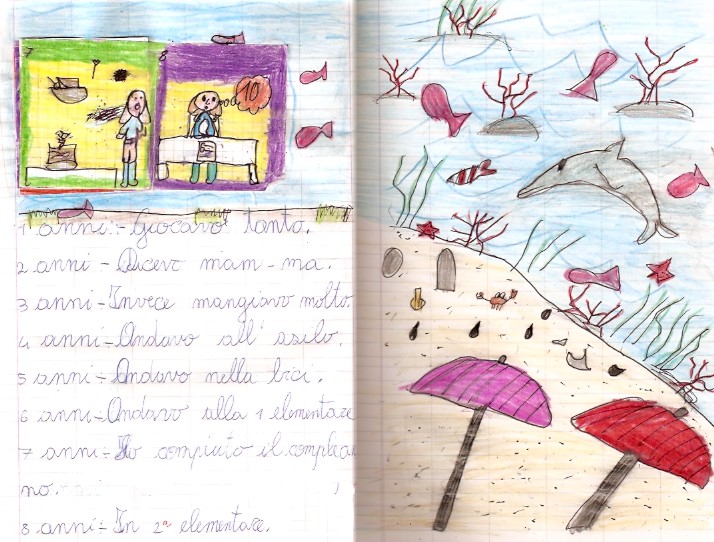 7
8
10
1 anni:- Giocavo tanto.
2 anni - Dicevo mam-ma.
3 anni - Invece mangiavo molto
4 anni - Andavo all'asilo.
5 anni - Andavo nella bici.
6 anni - Andavo alla 1 elementare
7 anni:- Ho compiuto il complean
no.
8 anni:- In 2ª elementare.